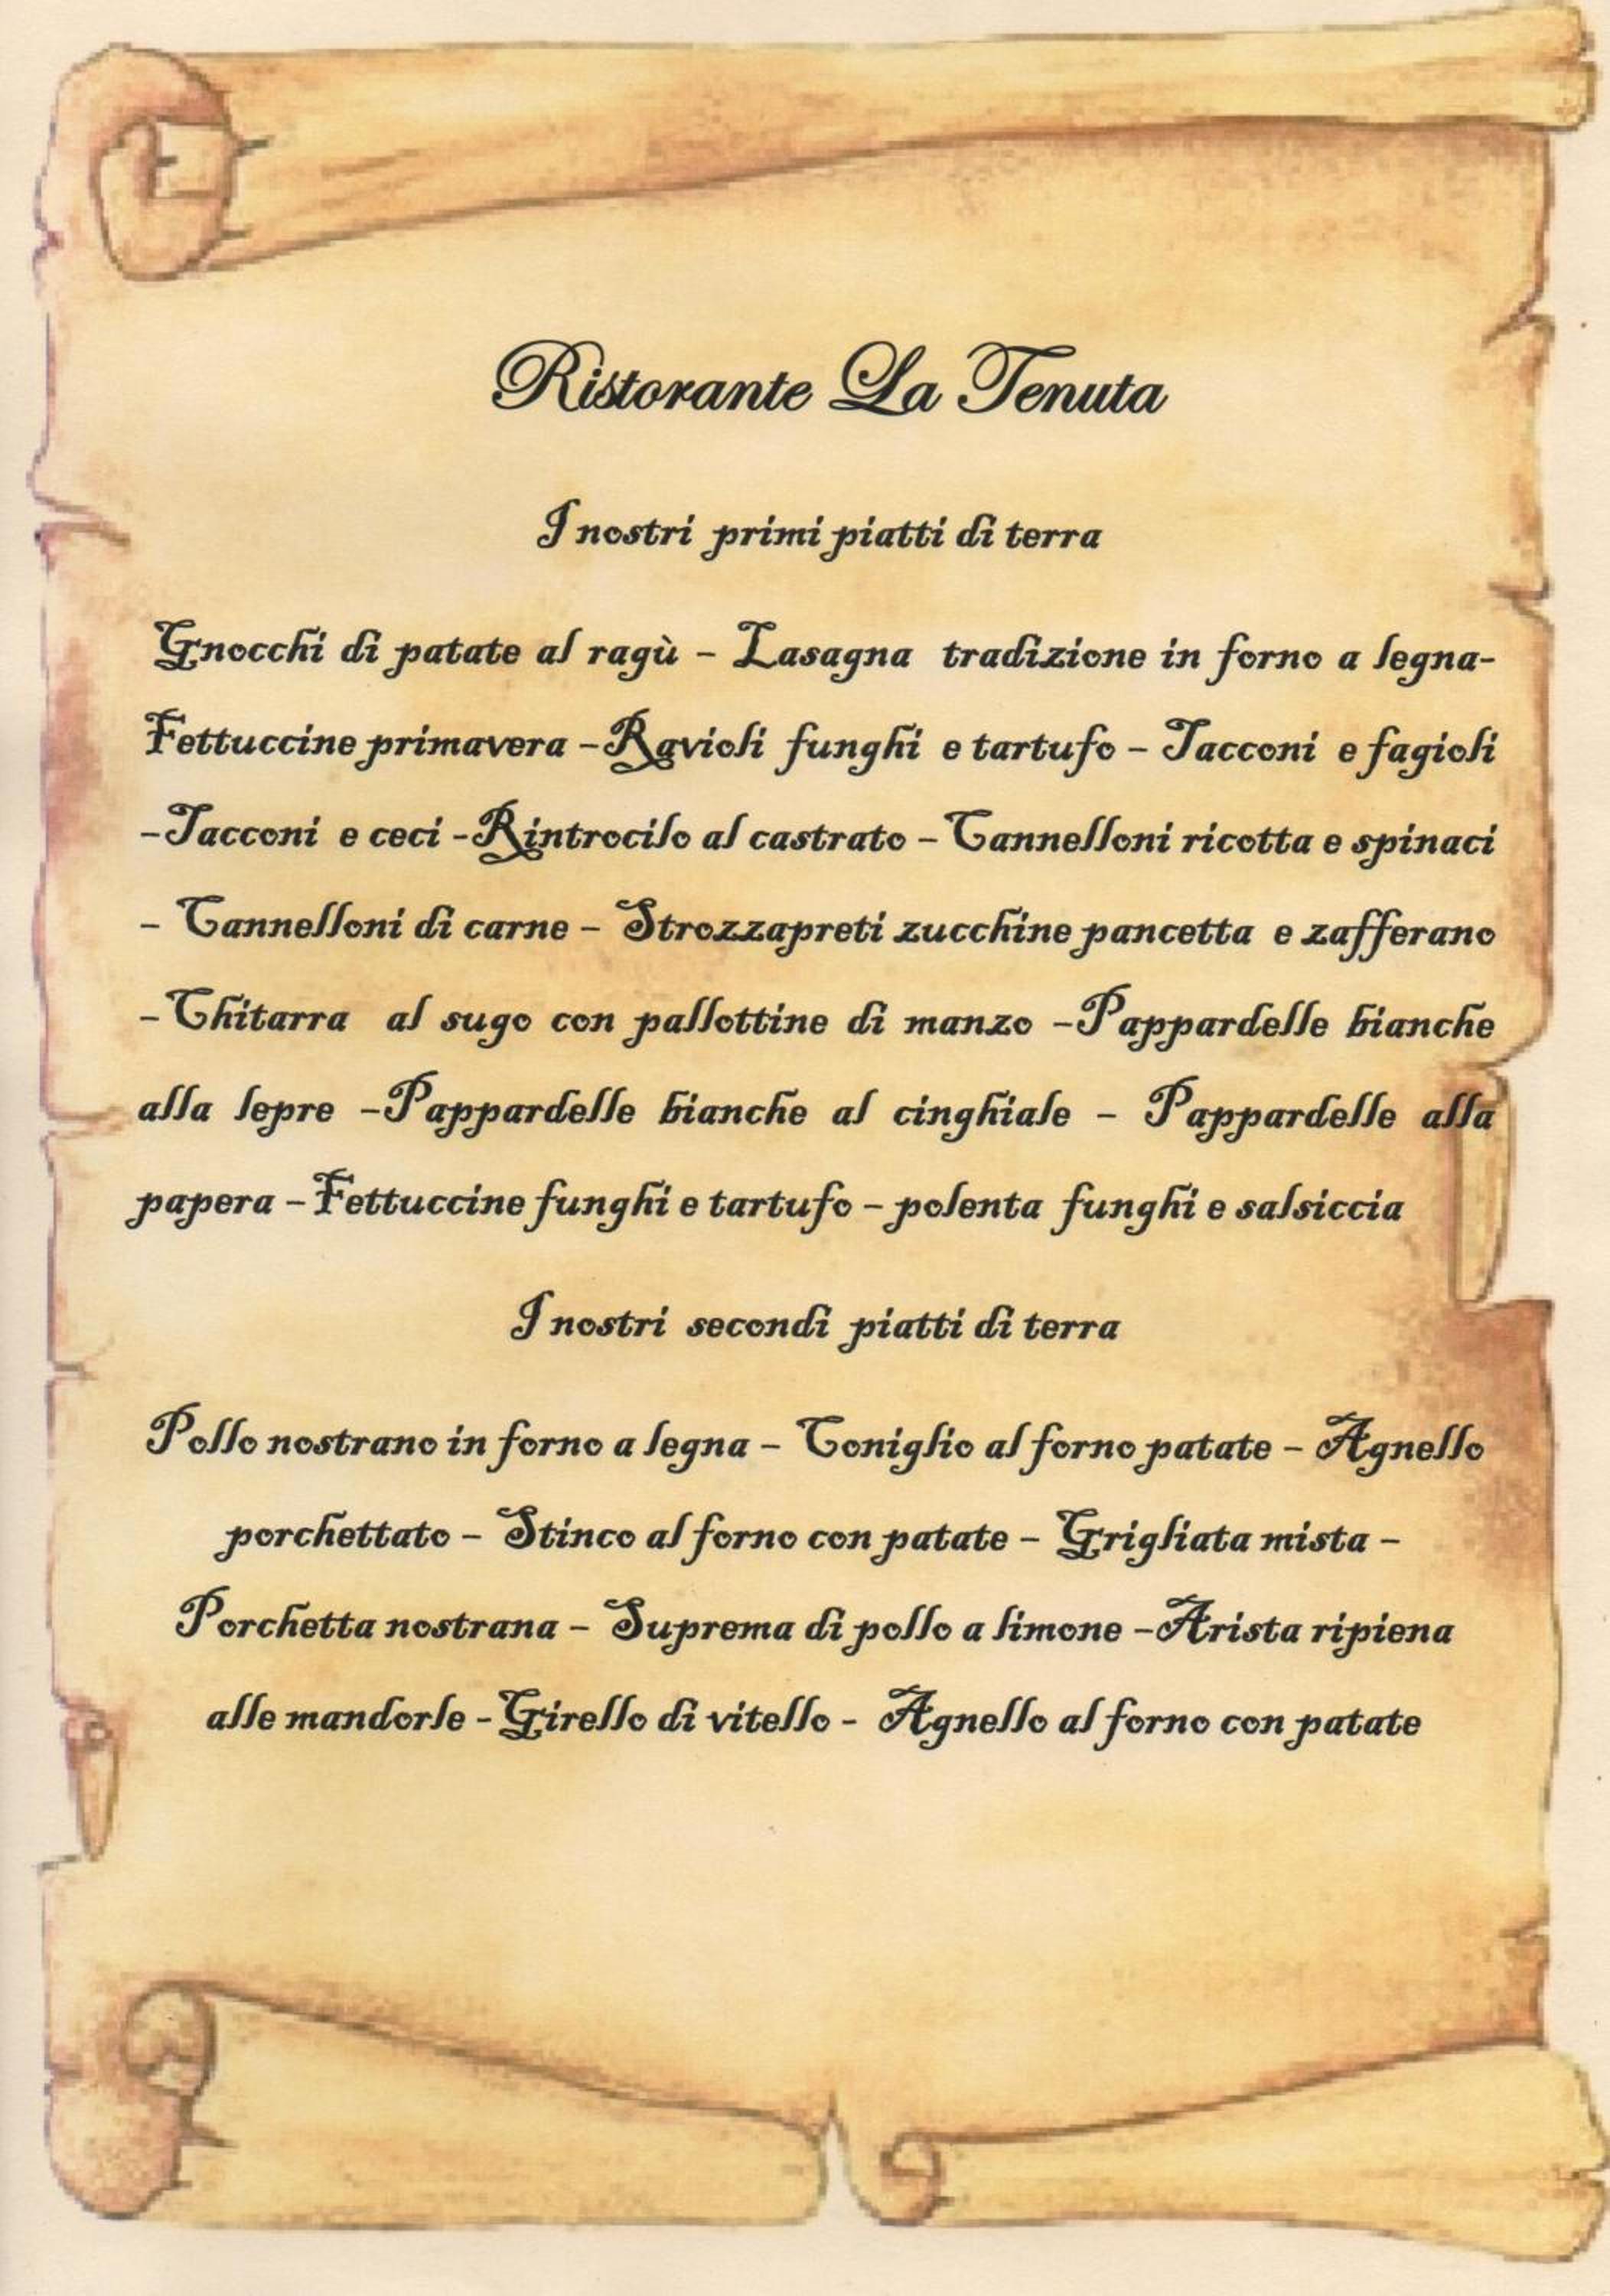 Ristorante La Tenuta
I nostri primi piatti di terra
Gnocchi di patate al ragù - Lasagna tradizione in forno a legna-
Fettuccine primavera -Ravioli funghi e tartufo - Tacconi e fagioli
-Tacconi e ceci -Rintrocilo al castrato - Cannelloni ricotta e spinaci
- Cannelloni di carne - Strozzapreti zucchine pancetta e zafferano
-Chitarra al sugo con pallottine di manzo -Pappardelle bianche
alla lepre -Pappardelle bianche al cinghiale - Pappardelle alla
papera - Fettuccine funghi e tartufo - polenta funghi e salsiccia
I nostri secondi piatti di terra
Pollo nostrano in forno a legna - Coniglio al forno patate - Agnello
porchettato - Stinco al forno con patate - Grigliata mista -
Porchetta nostrana - Suprema di pollo a limone -Arista ripiena
alle mandorle - Girello di vitello - Agnello al forno con patate